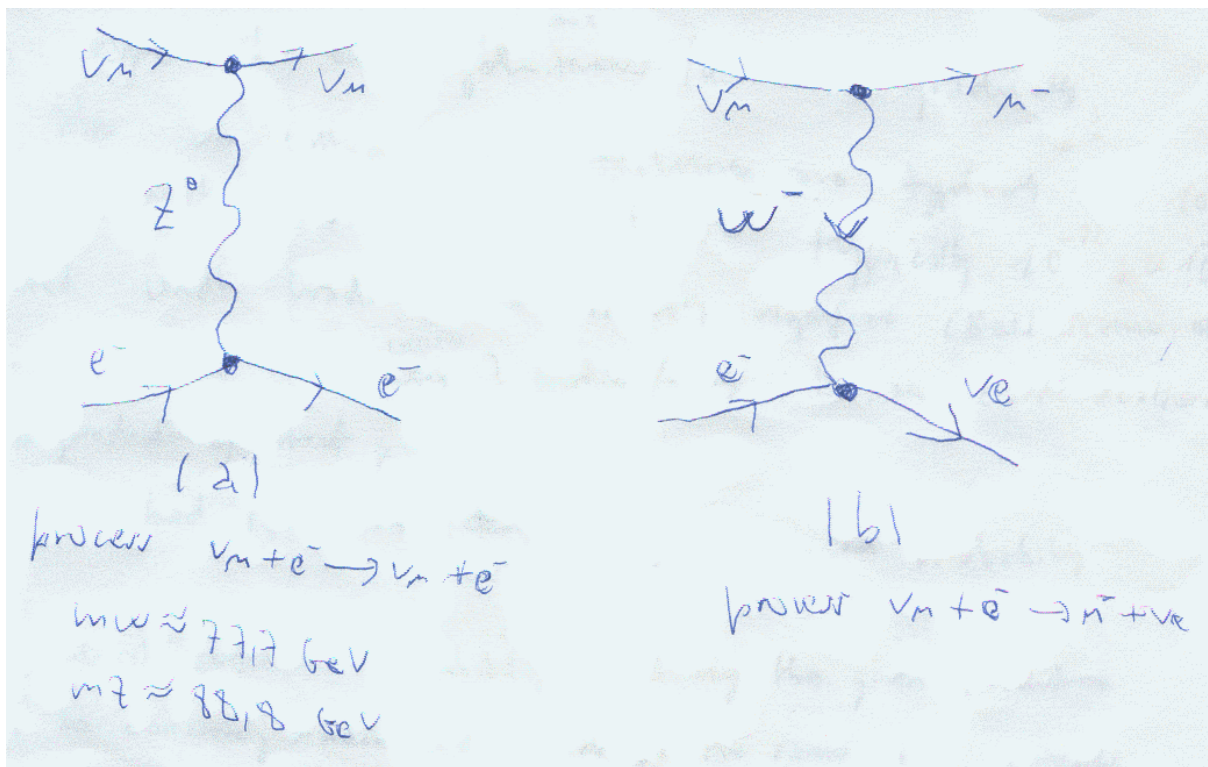 νμ νμ
Z⁰
e⁻ e⁻
(a)
process νμ + e⁻ → νμ + e⁻
mw ≈ 77,7 GeV
mz ≈ 88,8 GeV
νμ μ⁻
W⁻
e⁻ νe
(b)
process νμ + e⁻ → μ⁻ + νe